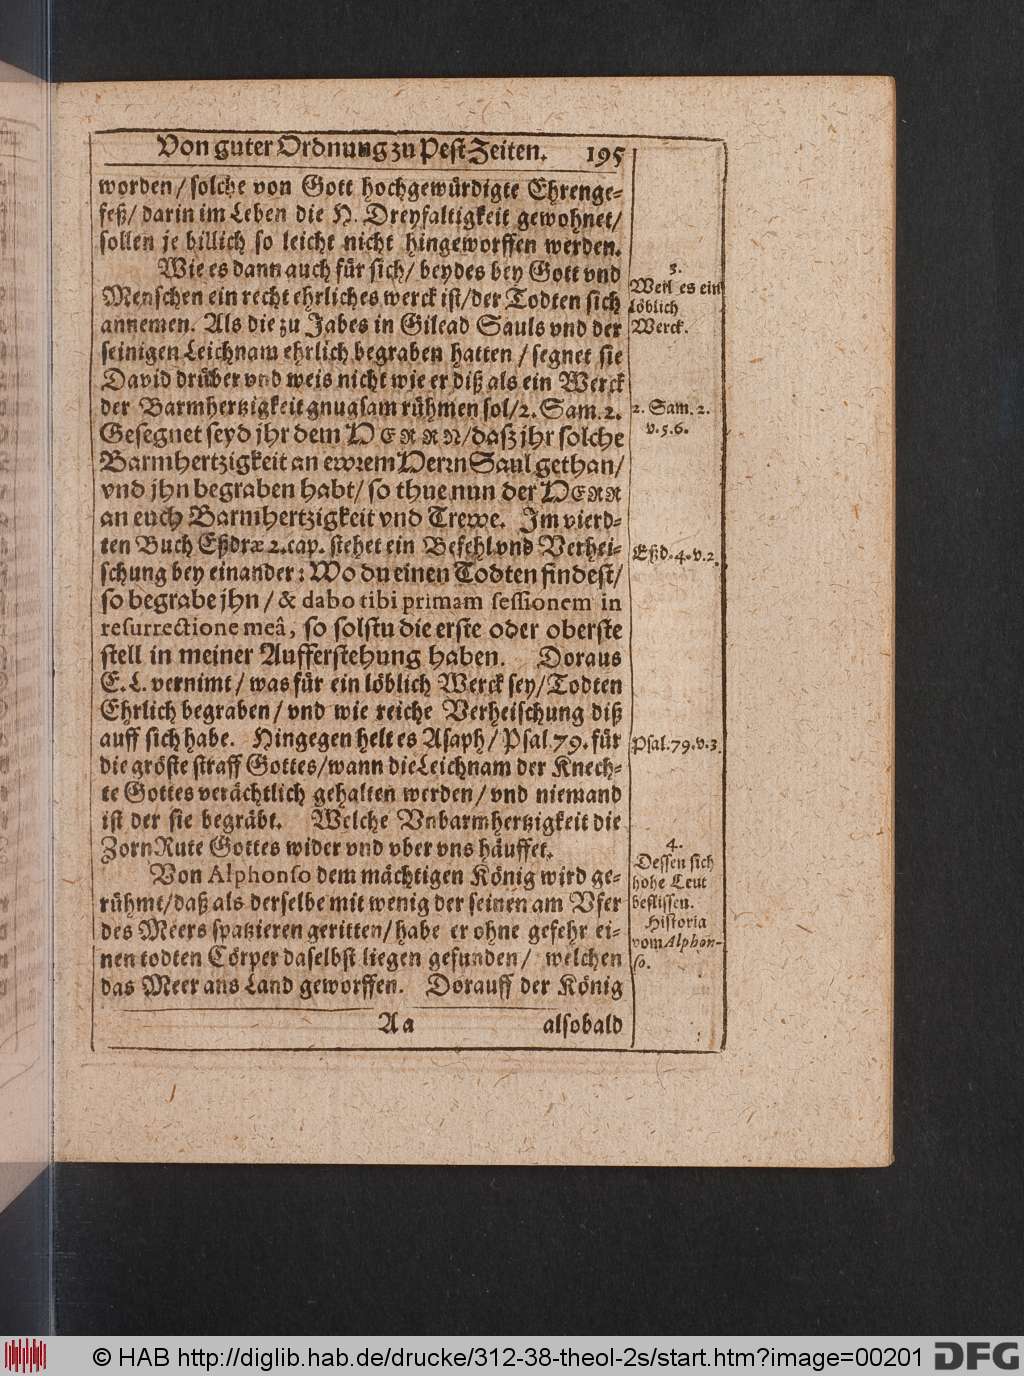 Von guter Ordnung zu Pest Zeiten. 195
worden / solche von Gott hochgewürdigte Ehrenge-
feß / darin im Leben die H. Dreyfaltigkeit gewohnet /
sollen je billich so leicht nicht hingeworffen werden.
Wie es dann auch für sich / beydes bey Gott vnd
Menschen ein recht ehrliches werck ist / der Todten sich
annemen. Als die zu Jabes in Gilead Sauls vnd der
seinigen Leichnam ehrlich begraben hatten / segnet sie
David drüber vnd weis nicht wie er diß als ein Werck
der Barmhertzigkeit gnugsam rühmen sol / 2. Sam. 2.
Gesegnet seyd jhr dem HERRN / daß jhr solche
Barmhertzigkeit an ewrem Herrn Saul gethan /
vnd jhn begraben habt / so thue nun der HERR
an euch Barmhertzigkeit vnd Trewe. Im vierd-
ten Buch Eßdræ 2. cap. stehet ein Befehl vnd Verhei-
schung bey einander: Wo du einen Todten findest /
so begrabe jhn / & dabo tibi primam sessionem in
resurrectione meâ, so solstu die erste oder oberste
stell in meiner Aufferstehung haben. Doraus
E. L. vernimt / was für ein löblich Werck sey / Todten
Ehrlich begraben / vnd wie reiche Verheischung diß
auff sich habe. Hingegen helt es Asaph / Psal. 79. für
die gröste straff Gottes / wann die Leichnam der Knech-
te Gottes verächtlich gehalten werden / vnd niemand
ist der sie begräbt. Welche Vnbarmhertzigkeit die
ZornRute Gottes wider vnd vber vns häuffet.
Von Alphonso dem mächtigen König wird ge-
rühmt / daß als derselbe mit wenig der seinen am Vfer
des Meers spatzieren geritten / habe er ohne gefehr ei-
nen todten Cörper daselbst liegen gefunden / welchen
das Meer ans Land geworffen. Dorauff der König
Aa alsobald
3.
Weil es ein
löblich
Werck.
2. Sam. 2.
v. 5. 6.
Eßd. 4. v. 2.
Psal. 79. v. 3.
4.
Dessen sich
hohe Leut
beflissen.
Historia
vom Alphon-
so.
© HAB http://diglib.hab.de/drucke/312-38-theol-2s/start.htm?image=00201
DFG